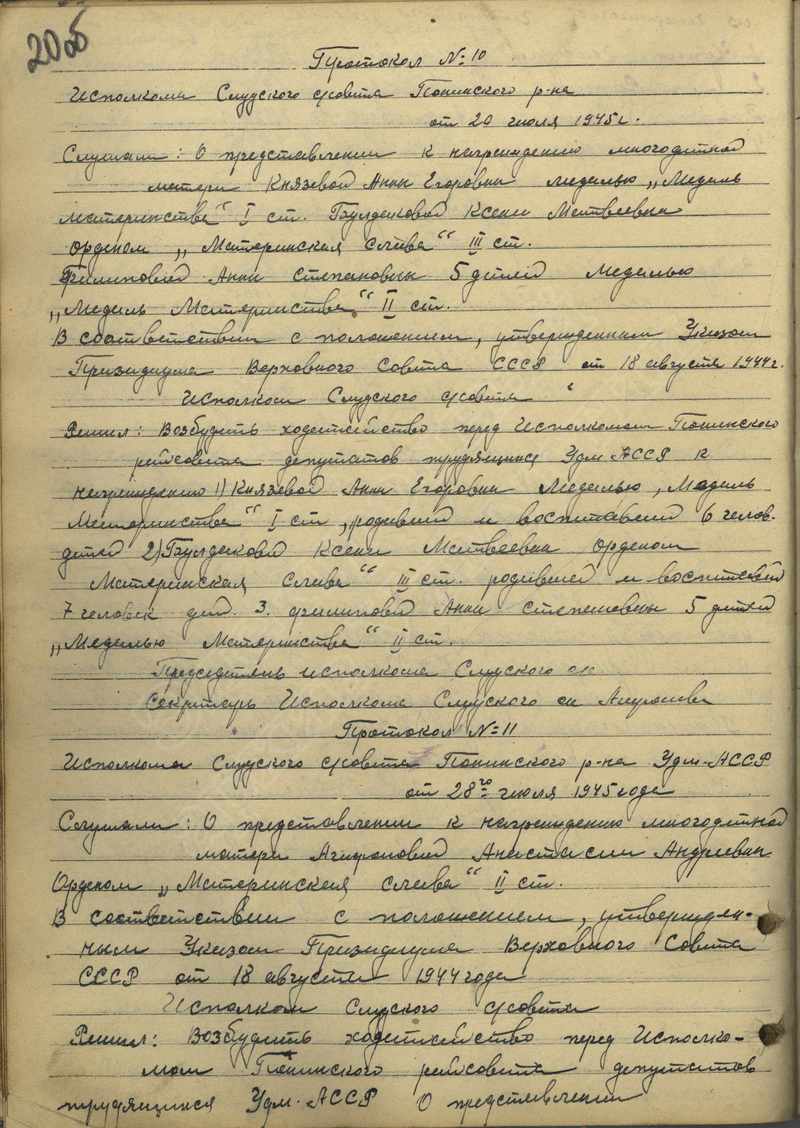 20об
Протокол №10
Исполкома Слудского с/совета Понинского р-на
от 20 июля 1945 г.
Слушали: О представлении к награждению многодетной
матери Князевой Анны Егоровны медалью „Медаль
материнства“ I ст. Булдаковой Ксени Матвеевны
орденом „Материнская слава“ III ст.
Филиповой Анны Степановны 5 детей медалью
„Медаль Материнства“ II ст.
В соответствии с положением, утвержденным Указом
Президиума Верховного Совета СССР от 18 августа 1944 г.
Исполком Слудского с/совета
Решил: Возбудить ходатайство перед Исполкомом Понинского
райсовета депутатов трудящихся Удм АССР к
награждению 1) Князевой Анны Егоровны Медалью „Медаль
Материнства“ I ст, родившей и воспитавшей 6 челов.
детей 2) Булдаковой Ксени Матвеевны Орденом
Материнская Слава“ III ст. родившей и воспитавшей
7 человек дет. 3. Филиповой Анны Степановны 5 детей
„Медалью Материнства“ II ст.
Председатель исполкома Слудского сс
Секретарь Исполкома Слудского сс
Протокол №11
Исполкома Слудского с/совета Понинского р-на Удм-АССР
от 28го июля 1945 года
Слушали: О представлении к награждению многодетной
матери Агафоновой Анастасии Андреевны
Орденом „Материнская слава“ II ст.
В соответствии с положением, утвержден-
ным Указом Президиума Верховного Совета
СССР от 18 августа 1944 года
Исполком Слудского с/совета
Решил: Возбудить ходатайство перед Исполко-
мом Понинского райсовета депутатов
трудящихся Удм. АССР О представлении